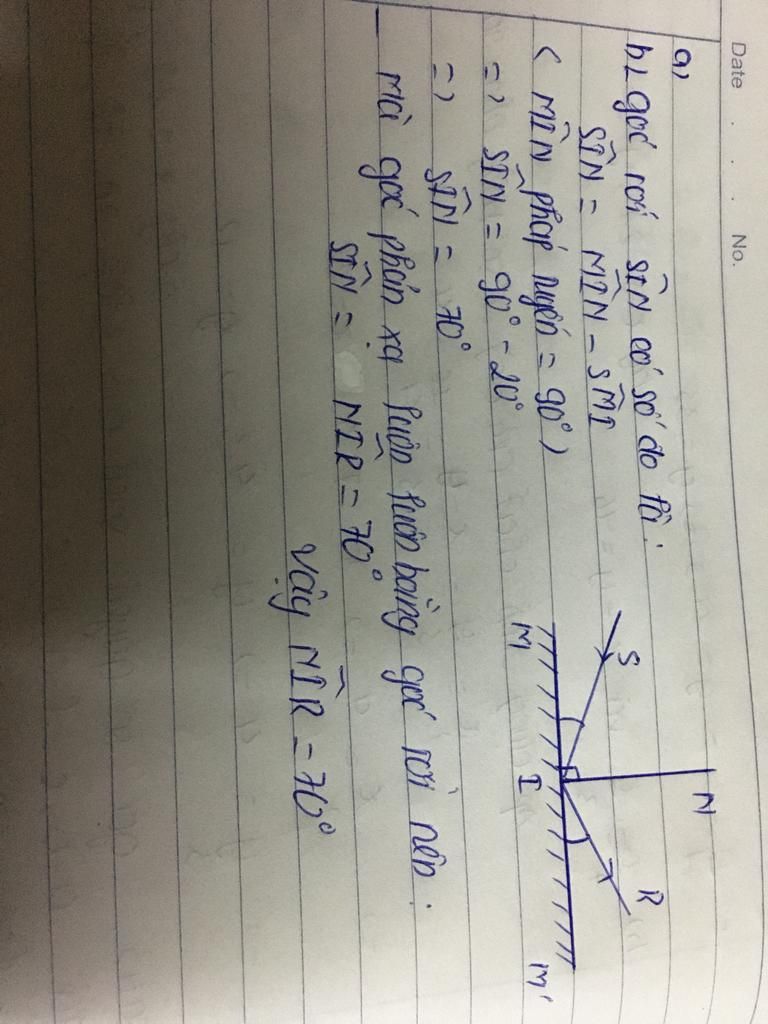 Date . . . No.
a)
b) góc tới SIN có số đo là:
SIN = MIN - SMI
( MIN pháp tuyến = 90° )
=> SIN = 90° - 20°
=> SIN = 70°
Mà góc phản xạ luôn luôn bằng góc tới nên:
SIN = NIR = 70°
Vậy NIR = 70°
S
N
R
M
I
M'